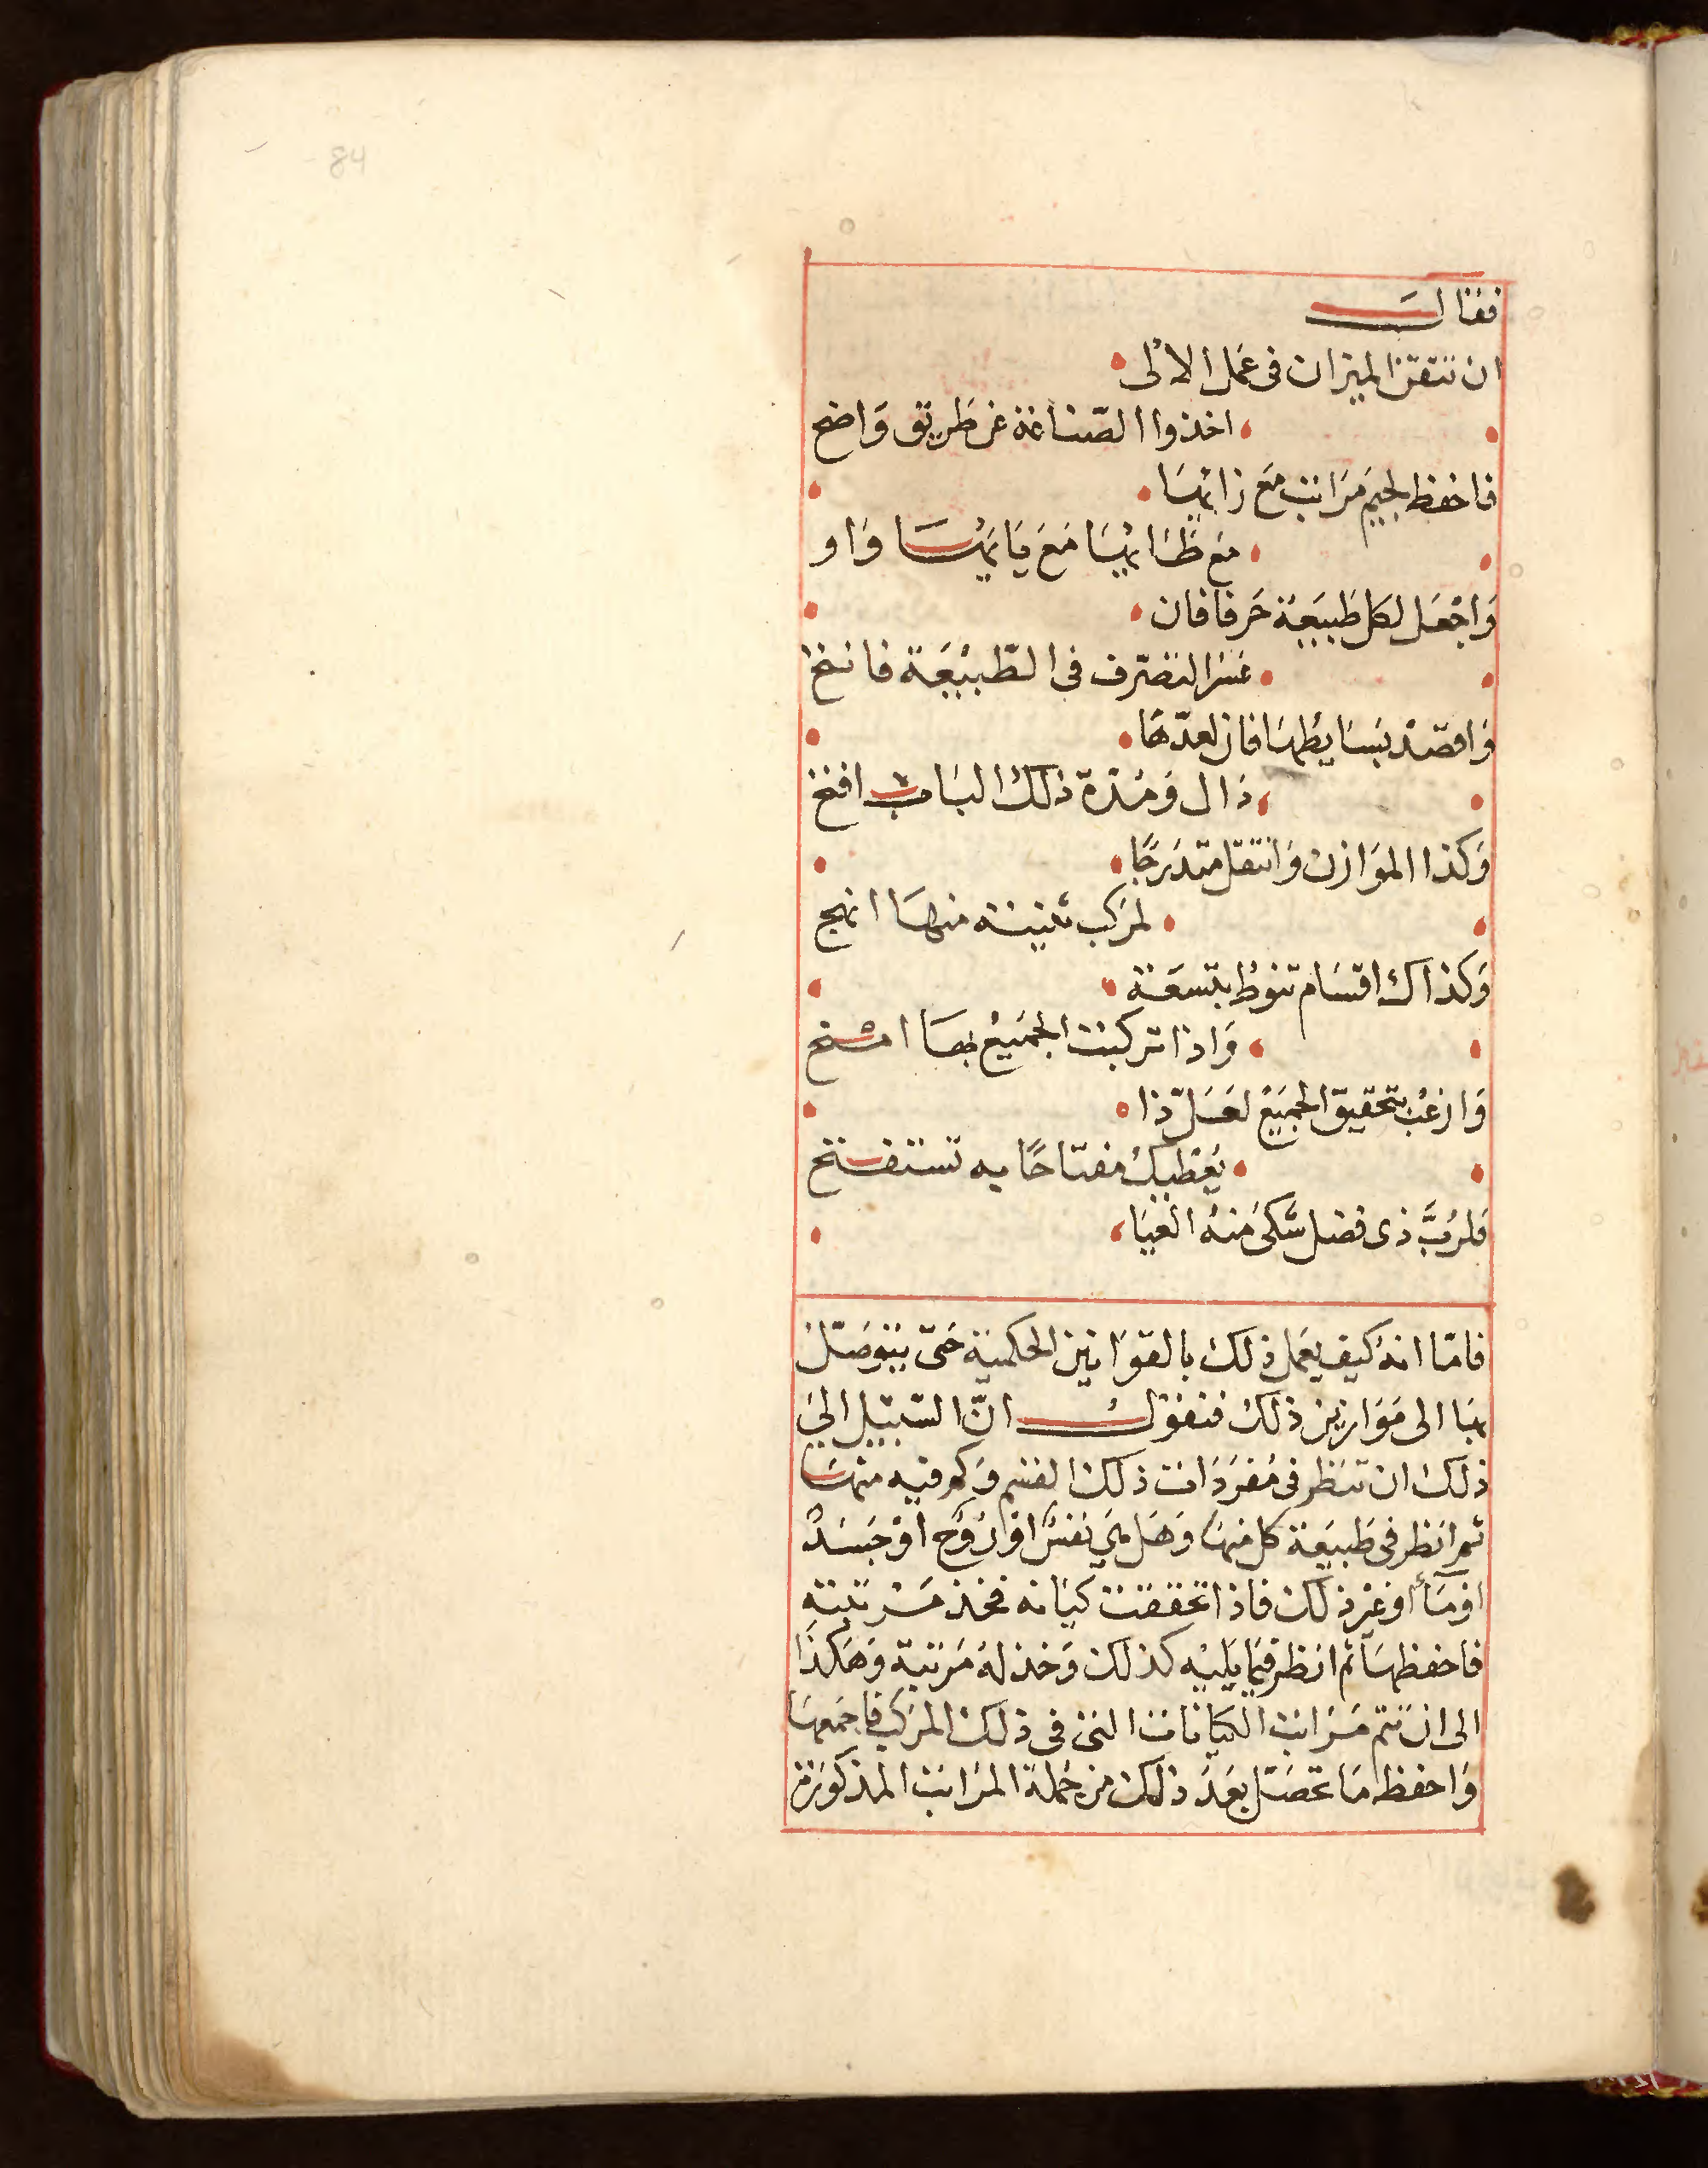 84
فقال
ان تتقن الميزان في عمل الالى
اخذوا الصناعة عن طريق واضح
فاحفظ لجيم مراتب مع زايها
مع ظائها مع يائها واو
واجعل لكل طبيعة حرفا فان
عسر التصرف في الطبيعة فانتخ
واقصد بسايطها فان لعدها
دال ومدة ذلك الباب افتخ
وكذا الموازن وانتقل متدرجا
لمركب منها انهج
وكذاك اقسام تنوط بتسعة
واذا تركبت الجميع بها
وارغب بتحقيق الجميع لعل ذا
يعطيك مفتاحا به تستفتح
فلرب ذي فضل شكى منه العيا
فامّا انه كيف يعمل ذلك بالقوانين الحكمية حتى يتوصل
بها الى موازين ذلك فنقول انّ السّبيل الي
ذلك ان تنظر في مفردات ذلك القسم وكم فيه منها
ثم انظر في طبيعة كل منها وهل هي نفس او روح او جسد
او ماء او غير ذلك فاذا تحققت كيانه فخذ مرتبته
فاحفظها ثم انظر فيما يليه كذلك وخذ له مرتبة وهكذا
الى ان تتم مراتب الكيانات التي في ذلك المركب فاجمعها
واحفظ ما تحصل بعد ذلك من جملة المراتب المذكورة